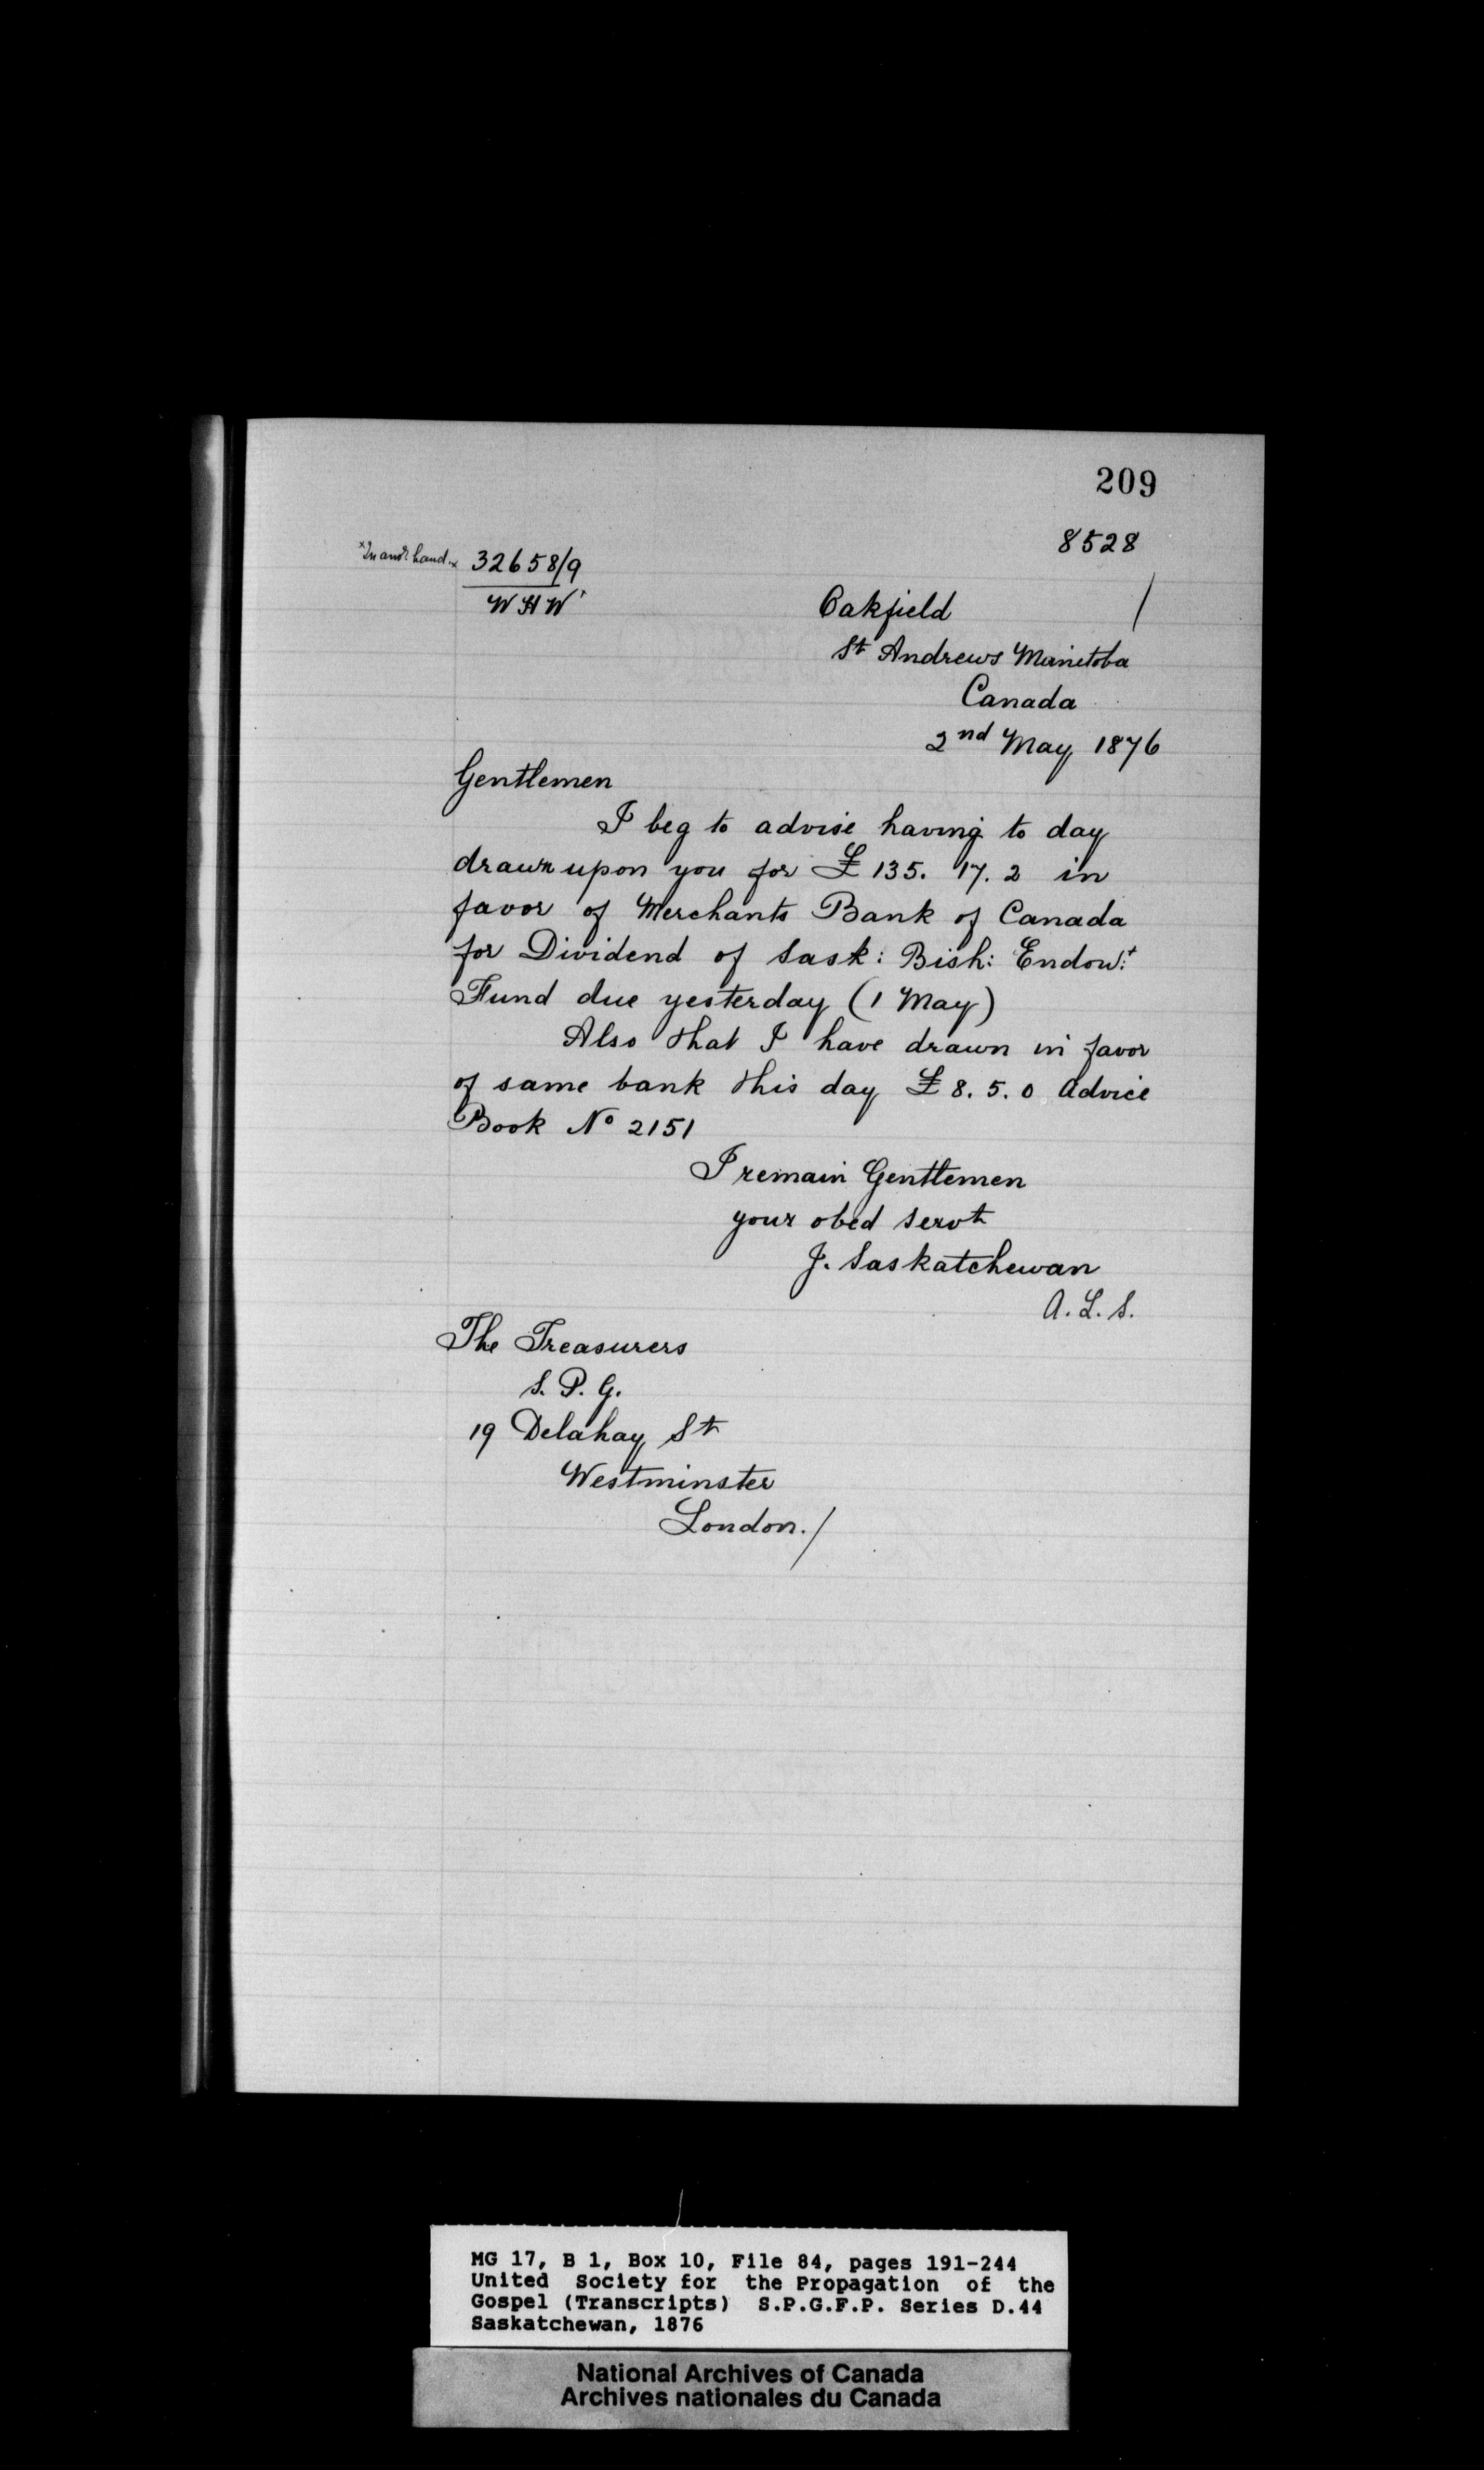 209
8528
×In anor hand.× 32658/9
WHW
Oakfield /
St Andrews Manitoba
Canada
2nd May 1876
Gentlemen
I beg to advise having to day
drawn upon you for £135. 17. 2 in
favor of Merchants Bank of Canada
for Dividend of Sask: Bish: Endow:t
Fund due yesterday (1 May)
Also that I have drawn in favor
of same bank this day £8. 5. 0 Advice
Book No 2151
I remain Gentlemen
your obed servt
J. Saskatchewan
A. L. S.
The Treasurers
S. P. G.
19 Delahay St
Westminster
London./
MG 17, B 1, Box 10, File 84, pages 191-244
United Society for the Propagation of the
Gospel (Transcripts) S.P.G.F.P. Series D.44
Saskatchewan, 1876
National Archives of Canada
Archives nationales du Canada